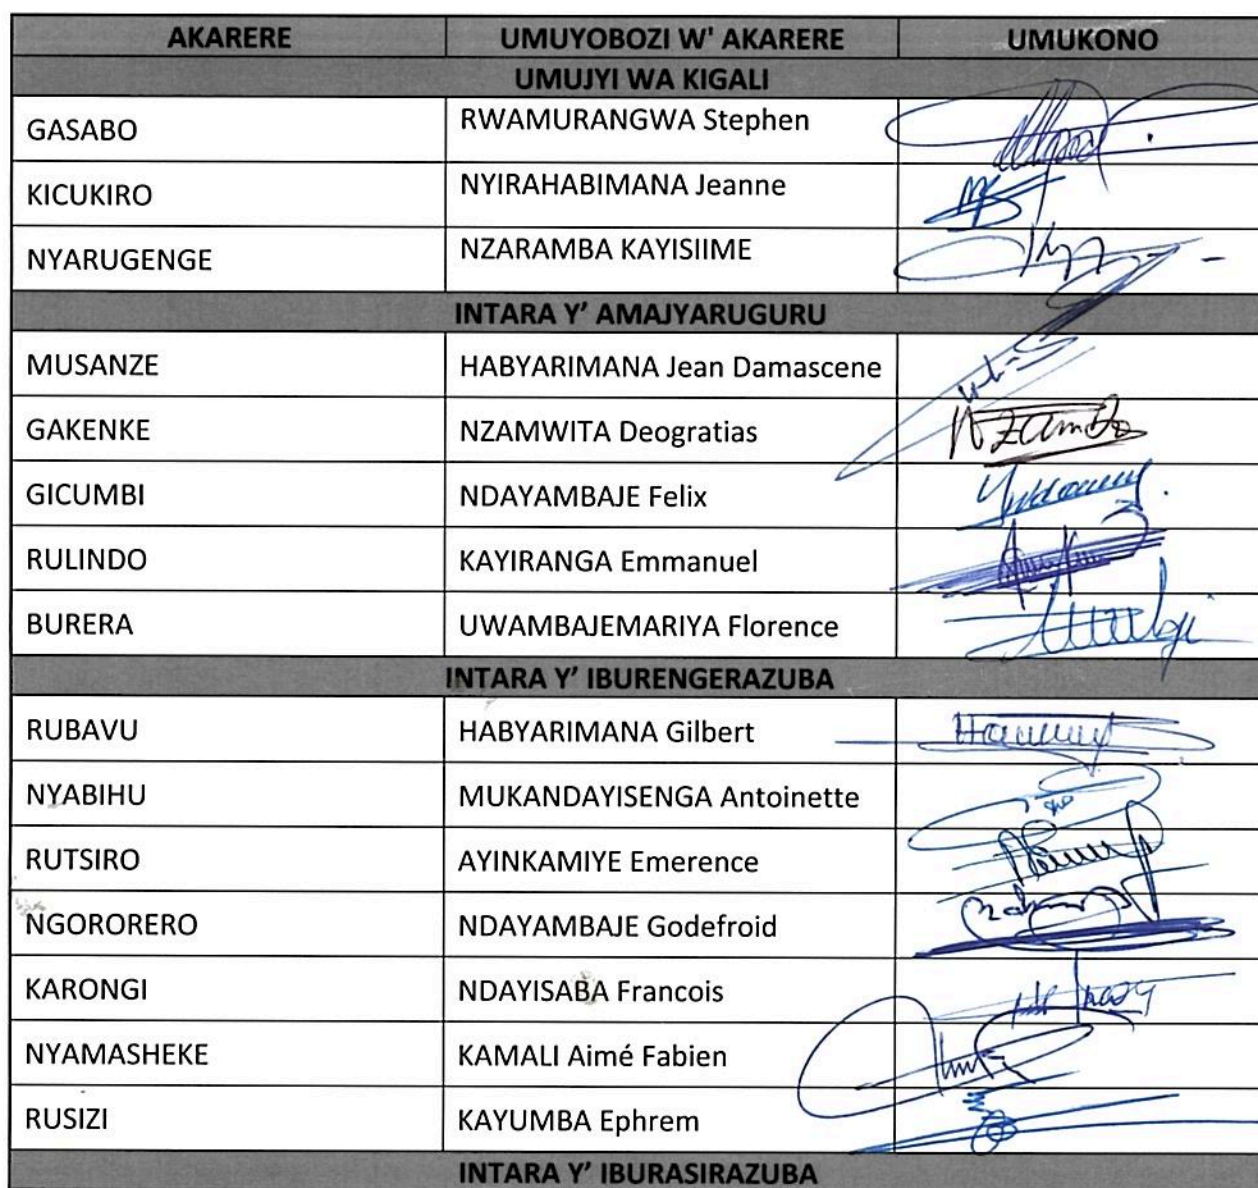 AKARERE UMUYOBOZI W' AKARERE UMUKONO
UMUJYI WA KIGALI
GASABO RWAMURANGWA Stephen
KICUKIRO NYIRAHABIMANA Jeanne
NYARUGENGE NZARAMBA KAYISIIME
INTARA Y’ AMAJYARUGURU
MUSANZE HABYARIMANA Jean Damascene
GAKENKE NZAMWITA Deogratias
GICUMBI NDAYAMBAJE Felix
RULINDO KAYIRANGA Emmanuel
BURERA UWAMBAJEMARIYA Florence
INTARA Y’ IBURENGERAZUBA
RUBAVU HABYARIMANA Gilbert
NYABIHU MUKANDAYISENGA Antoinette
RUTSIRO AYINKAMIYE Emerence
NGORORERO NDAYAMBAJE Godefroid
KARONGI NDAYISABA Francois
NYAMASHEKE KAMALI Aimé Fabien
RUSIZI KAYUMBA Ephrem
INTARA Y’ IBURASIRAZUBA